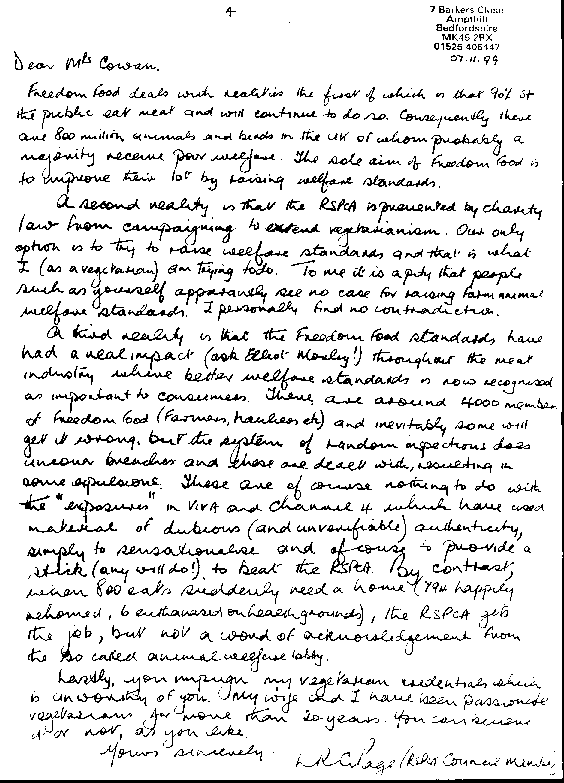 4
7 Barkers Close
Ampthill
Bedfordshire
MK45 2RX
01525 406447
07.11.99
Dear Mrs Cowan.
Freedom Food deals with realities the first of which is that 90% of
the public eat meat and will continue to do so. Consequently there
are 800 million animals and birds in the UK of whom probably a
majority receive poor welfare. The sole aim of Freedom Food is
to improve their lot by raising welfare standards.
A second reality is that the RSPCA is prevented by charity
law from campaigning to extend vegetarianism. Our only
option is to try to raise welfare standards and that is what
I (as a vegetarian) am trying to do. To me it is a pity that people
such as yourself apparently see no case for raising farm animal
welfare standards. I personally find no contradiction.
A third reality is that the Freedom Food standards have
had a real impact (ask Elliot Morley!) throughout the meat
industry where better welfare standards is now recognised
as important to consumers. There are around 4000 members
of Freedom Food (farmers, hauliers etc) and inevitably some will
get it wrong, but the system of random inspections does
uncover breaches and these are dealt with, resulting in
some expulsions. These are of course nothing to do with
the "exposures" in VIVA and Channel 4 which have used
material of dubious (and unverifiable) authenticity,
simply to sensationalise and of course to provide a
stick (any will do!) to beat the RSPCA. By contrast,
when 800 cats suddenly need a home (794 happily
rehomed, 6 euthanased on health grounds), the RSPCA gets
the job, but not a word of acknowledgement from
the so called animal welfare lobby.
Lastly, you impugn my vegetarian credentials which
is unworthy of you. My wife and I have been passionate
vegetarians for more than 20 years. You can believe
it or not, as you like.
Yours sincerely.
Page (RSPCA Council Member)